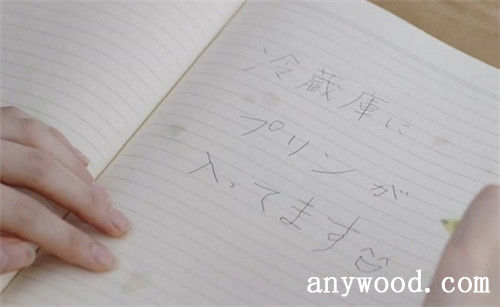 冷蔵庫に
プリンが
入ってます
anywood.com